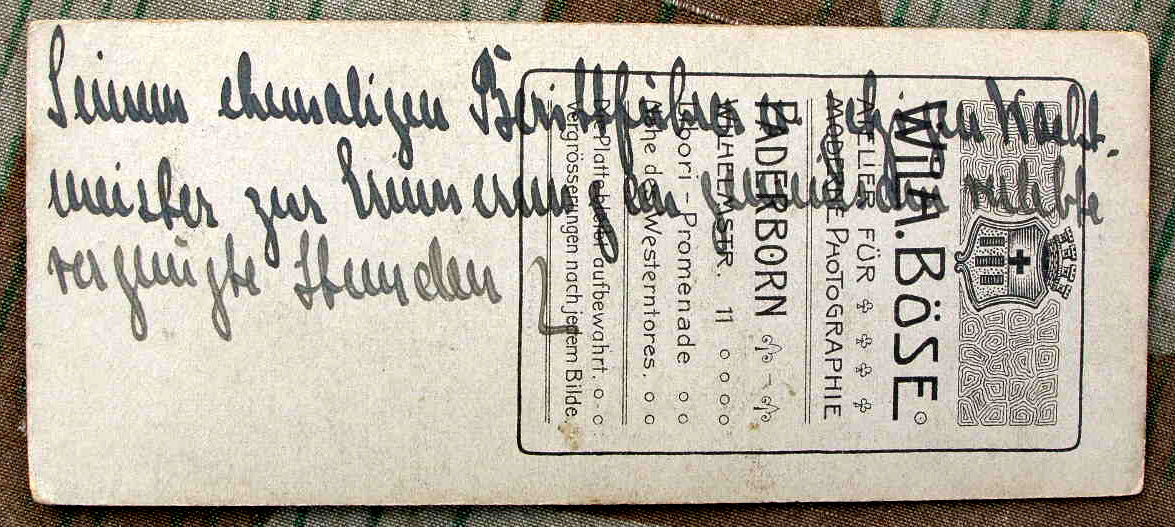 Seinem ehemaligen Berittführer u. jetzigen Wacht-
meister zur Erinnerung an
vergnügte Stunden
WILH. BÖSE
ATELIER FÜR
MODERNE PHOTOGRAPHIE
PADERBORN
WILHELMSTR. 11
Libori-Promenade
Nähe des Westerntores.
Die Platte bleibt aufbewahrt.
Vergrösserungen nach jedem Bilde.